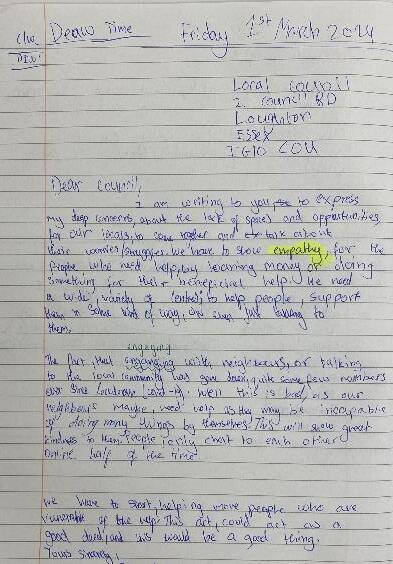 Deaw Time Friday 1st March 2024
Local council
2 council RD
Loughton
Essex
IG10 COU
Dear council,
I am writing to you to express
my deep concerns, about the lack of spaces and opportunities
for our locals, to come together and talk about
their worries/struggles. We have to show empathy, for the
people who need help, by learning money or doing
something for their beneficial help. We need
a wide, variety of centres, to help people, support
them in some kind of way, and even just talking to
them.
engaging
The fact, that with neighbours, or talking
to the local community has gone down, quite some few numbers
ever since lockdown, covid-19. Well this is bad, as our
neighbours maybe, need help as they may be incapable
of doing many things by themselves. This will show great
kindness to them. People rarely chat to each other
online half of the time.
We have to start, helping more people who are
vunerable of the help. This act, could act as a
good deed, and this would be a good thing.
Yours sincerly,